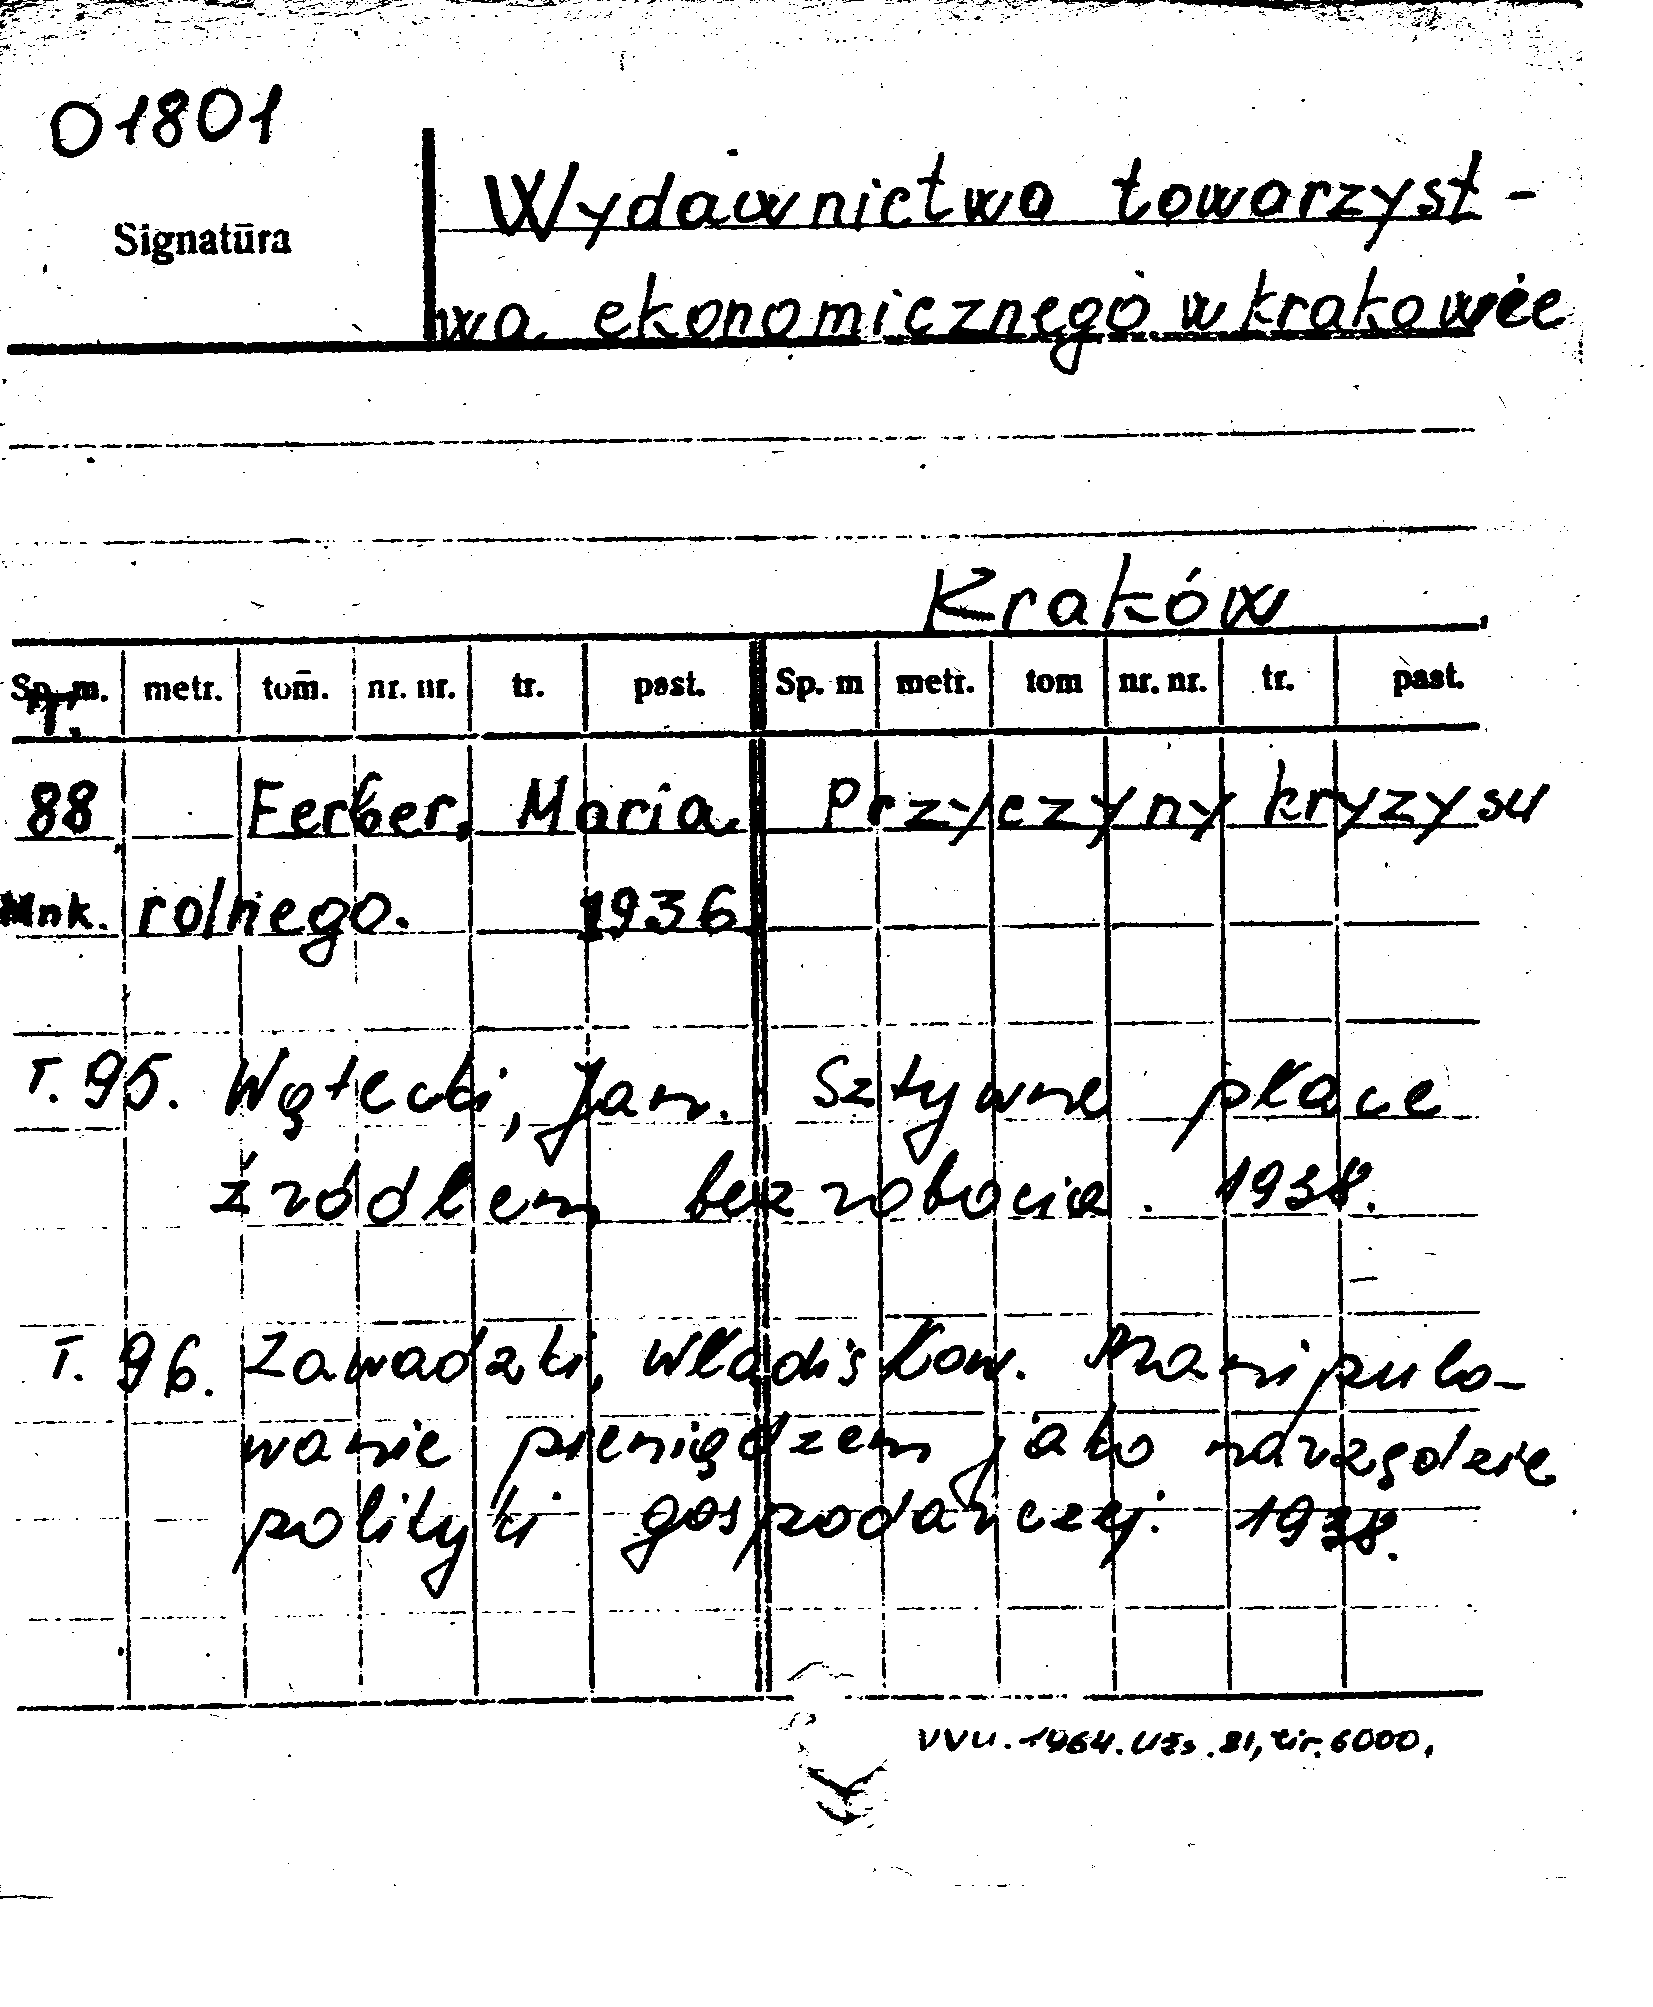 01801
Signatūra
Wydawnictwa towarzyst-
wa ekonomicznego w krakowie
Kraków
Sp. m. metr. tom. nr. nr. tr. past. Sp. m metr. tom nr. nr. tr. past.
T.
88 Ferber, Maria. Przyczyny kryzysu
Mnk. rolnego. 1936
T. 95. Wątecki, Jan. Sztywne płace
źródłem bezrobocia. 1938.
T. 96. Zawadzki, Władisław. Manipulo-
wanie pieniędzem jako narzędzie
polityki gospodarczej. 1938.
VVU. 1964. Užs. 81, tir. 6000.